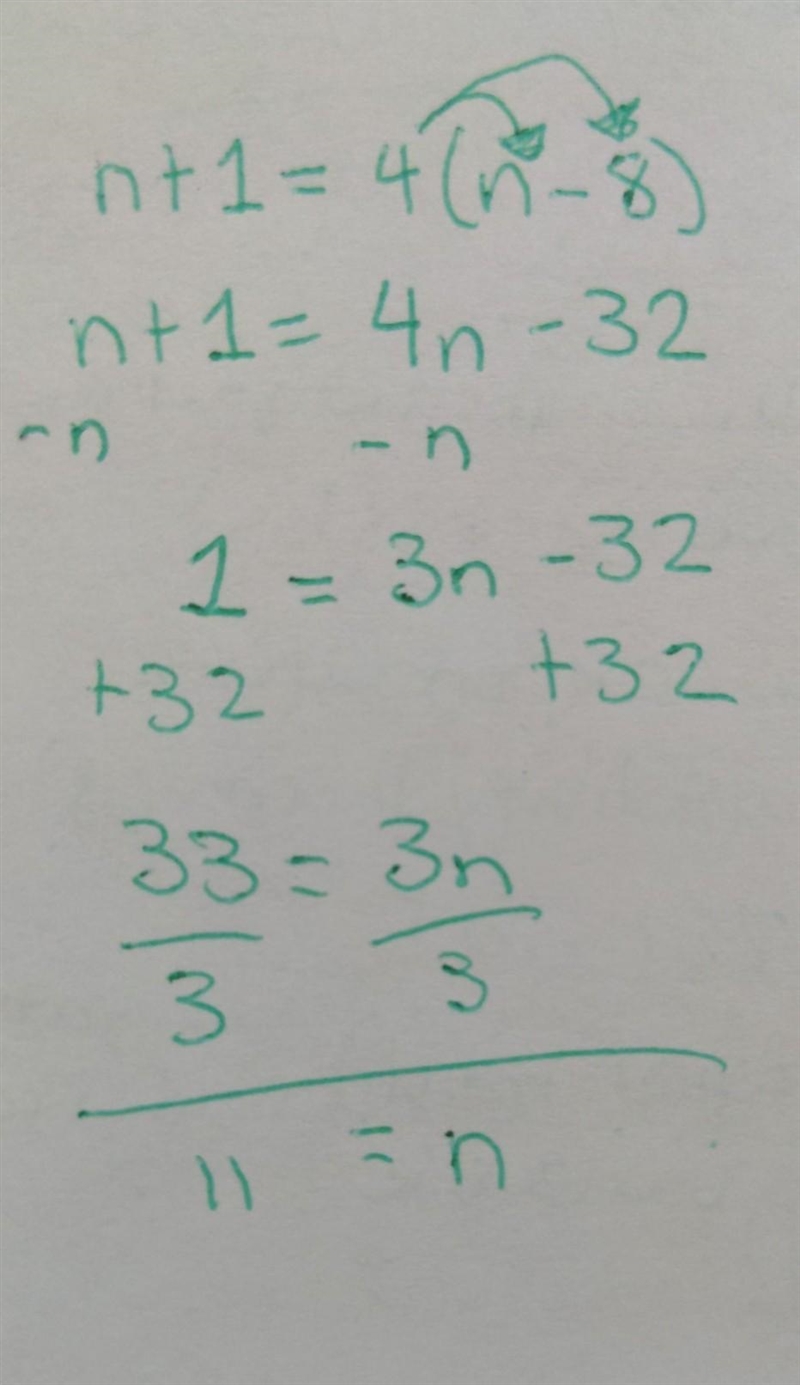 n+1=4(n-8)
n+1=4n-32
-n -n
1=3n-32
+32 +32
33=3n
3 3
11=n